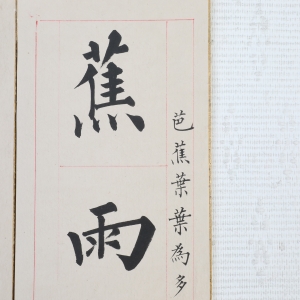 蕉雨
芭蕉葉葉為多